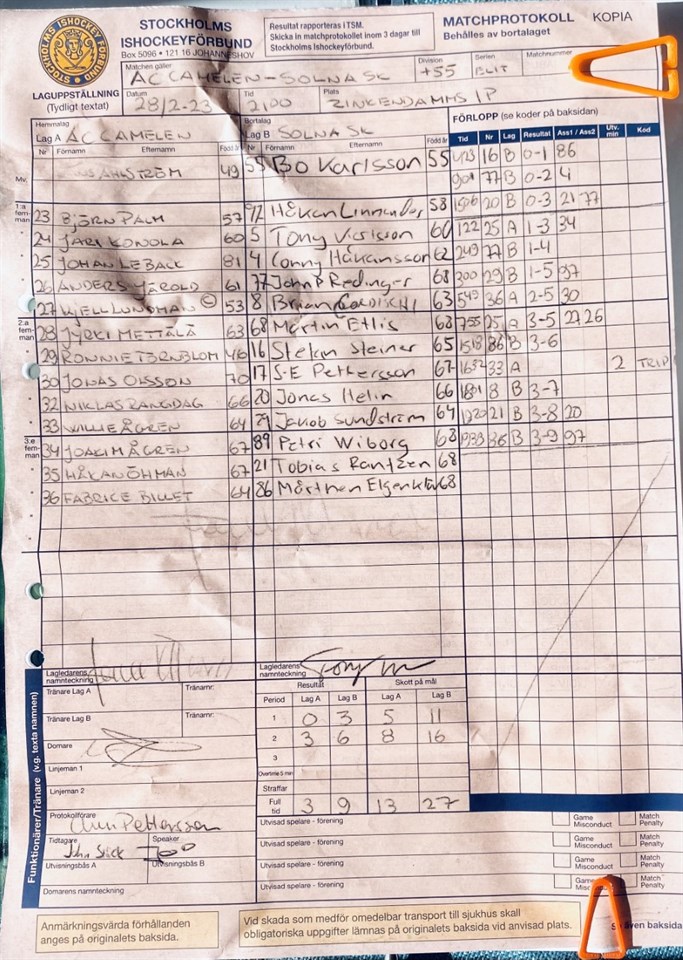 STOCKHOLMS ISHOCKEYFÖRBUND
STOCKHOLMS
ISHOCKEYFÖRBUND
Box 5096 • 121 16 JOHANNESHOV
Resultat rapporteras i TSM.
Skicka in matchprotokollet inom 3 dagar till
Stockholms Ishockeyförbund.
MATCHPROTOKOLL KOPIA
Behålles av bortalaget
LAGUPPSTÄLLNING
(Tydligt textat)
Matchen gäller
AC CAMELEN - SOLNA SK
Division
+55
Serien
Matchnummer
Datum
28/2-23
Tid
2100
Plats
ZINKENDAMMS IP
Hemmalag
Lag A AC CAMELEN
Bortalag
Lag B SOLNA SK
FÖRLOPP (se koder på baksidan)
Nr Förnamn Efternamn Född år Nr Förnamn Efternamn Född år Tid Nr Lag Resultat Ass1 / Ass2 Utv. min Kod
Mv. AHLSTRÖM 49 55 Bo Karlsson 55 16 B 0-1 86
901 77 B 0-2 4
1:a fem-man 23 BJÖRN PALM 57 Håkan 58 1506 20 B 0-3 21 77
24 JARI KONOLA 60 5 Tony 60 122 25 A 1-3 34
25 JOHAN LEBACK 81 4 Conny Håkansson 62 249 77 B 1-4
26 ANDERS 61 77 John P Redinger 68 200 29 B 1-5 97
27 KJELL LUNDMAN © 53 8 Brian 63 549 36 A 2-5 30
2:a fem-man 28 JYRKI METTÄLÄ 63 68 Martin Ellis 68 755 25 A 3-5 27 26
29 RONNIE TÖRNBLOM 46 16 Stefan Steiner 65 1518 86 B 3-6
30 JONAS OLSSON 70 17 S-E Pettersson 67 1632 33 A 2 TRIP
32 NIKLAS RANGDAG 66 20 Jonas Helin 66 1801 8 B 3-7
33 WILLIE ÅGREN 64 29 Jakob Sundström 64 1920 21 B 3-8 20
3:e fem-man 34 JOAKIM ÅGREN 67 89 Petri Wiborg 68 1939 36 B 3-9 97
35 HÅKAN ÖHMAN 67 21 Tobias Rantzén 68
36 FABRICE BILLET 64 86 Mårthen 68
Funktionärer/Tränare (v.g. texta namnen)
Lagledarens
namnteckning
Lagledarens
namnteckning
Tränare Lag A Tränarnr:
Tränare Lag B Tränarnr:
Domare
Linjeman 1
Linjeman 2
Protokollförare
Pettersson
Tidtagare
Speaker
Utvisningsbås A
Utvisningsbås B
Domarens namnteckning
Resultat Skott på mål
Period Lag A Lag B Lag A Lag B
1 0 3 5 11
2 3 6 8 16
3
Overtime 5 min
Straffar
Full tid 3 9 13 27
Utvisad spelare - förening Game Misconduct Match Penalty
Utvisad spelare - förening Game Misconduct Match Penalty
Utvisad spelare - förening Game Misconduct Match Penalty
Utvisad spelare - förening Match Penalty
Anmärkningsvärda förhållanden
anges på originalets baksida.
Vid skada som medför omedelbar transport till sjukhus skall
obligatoriska uppgifter lämnas på originalets baksida vid anvisad plats.
även baksida